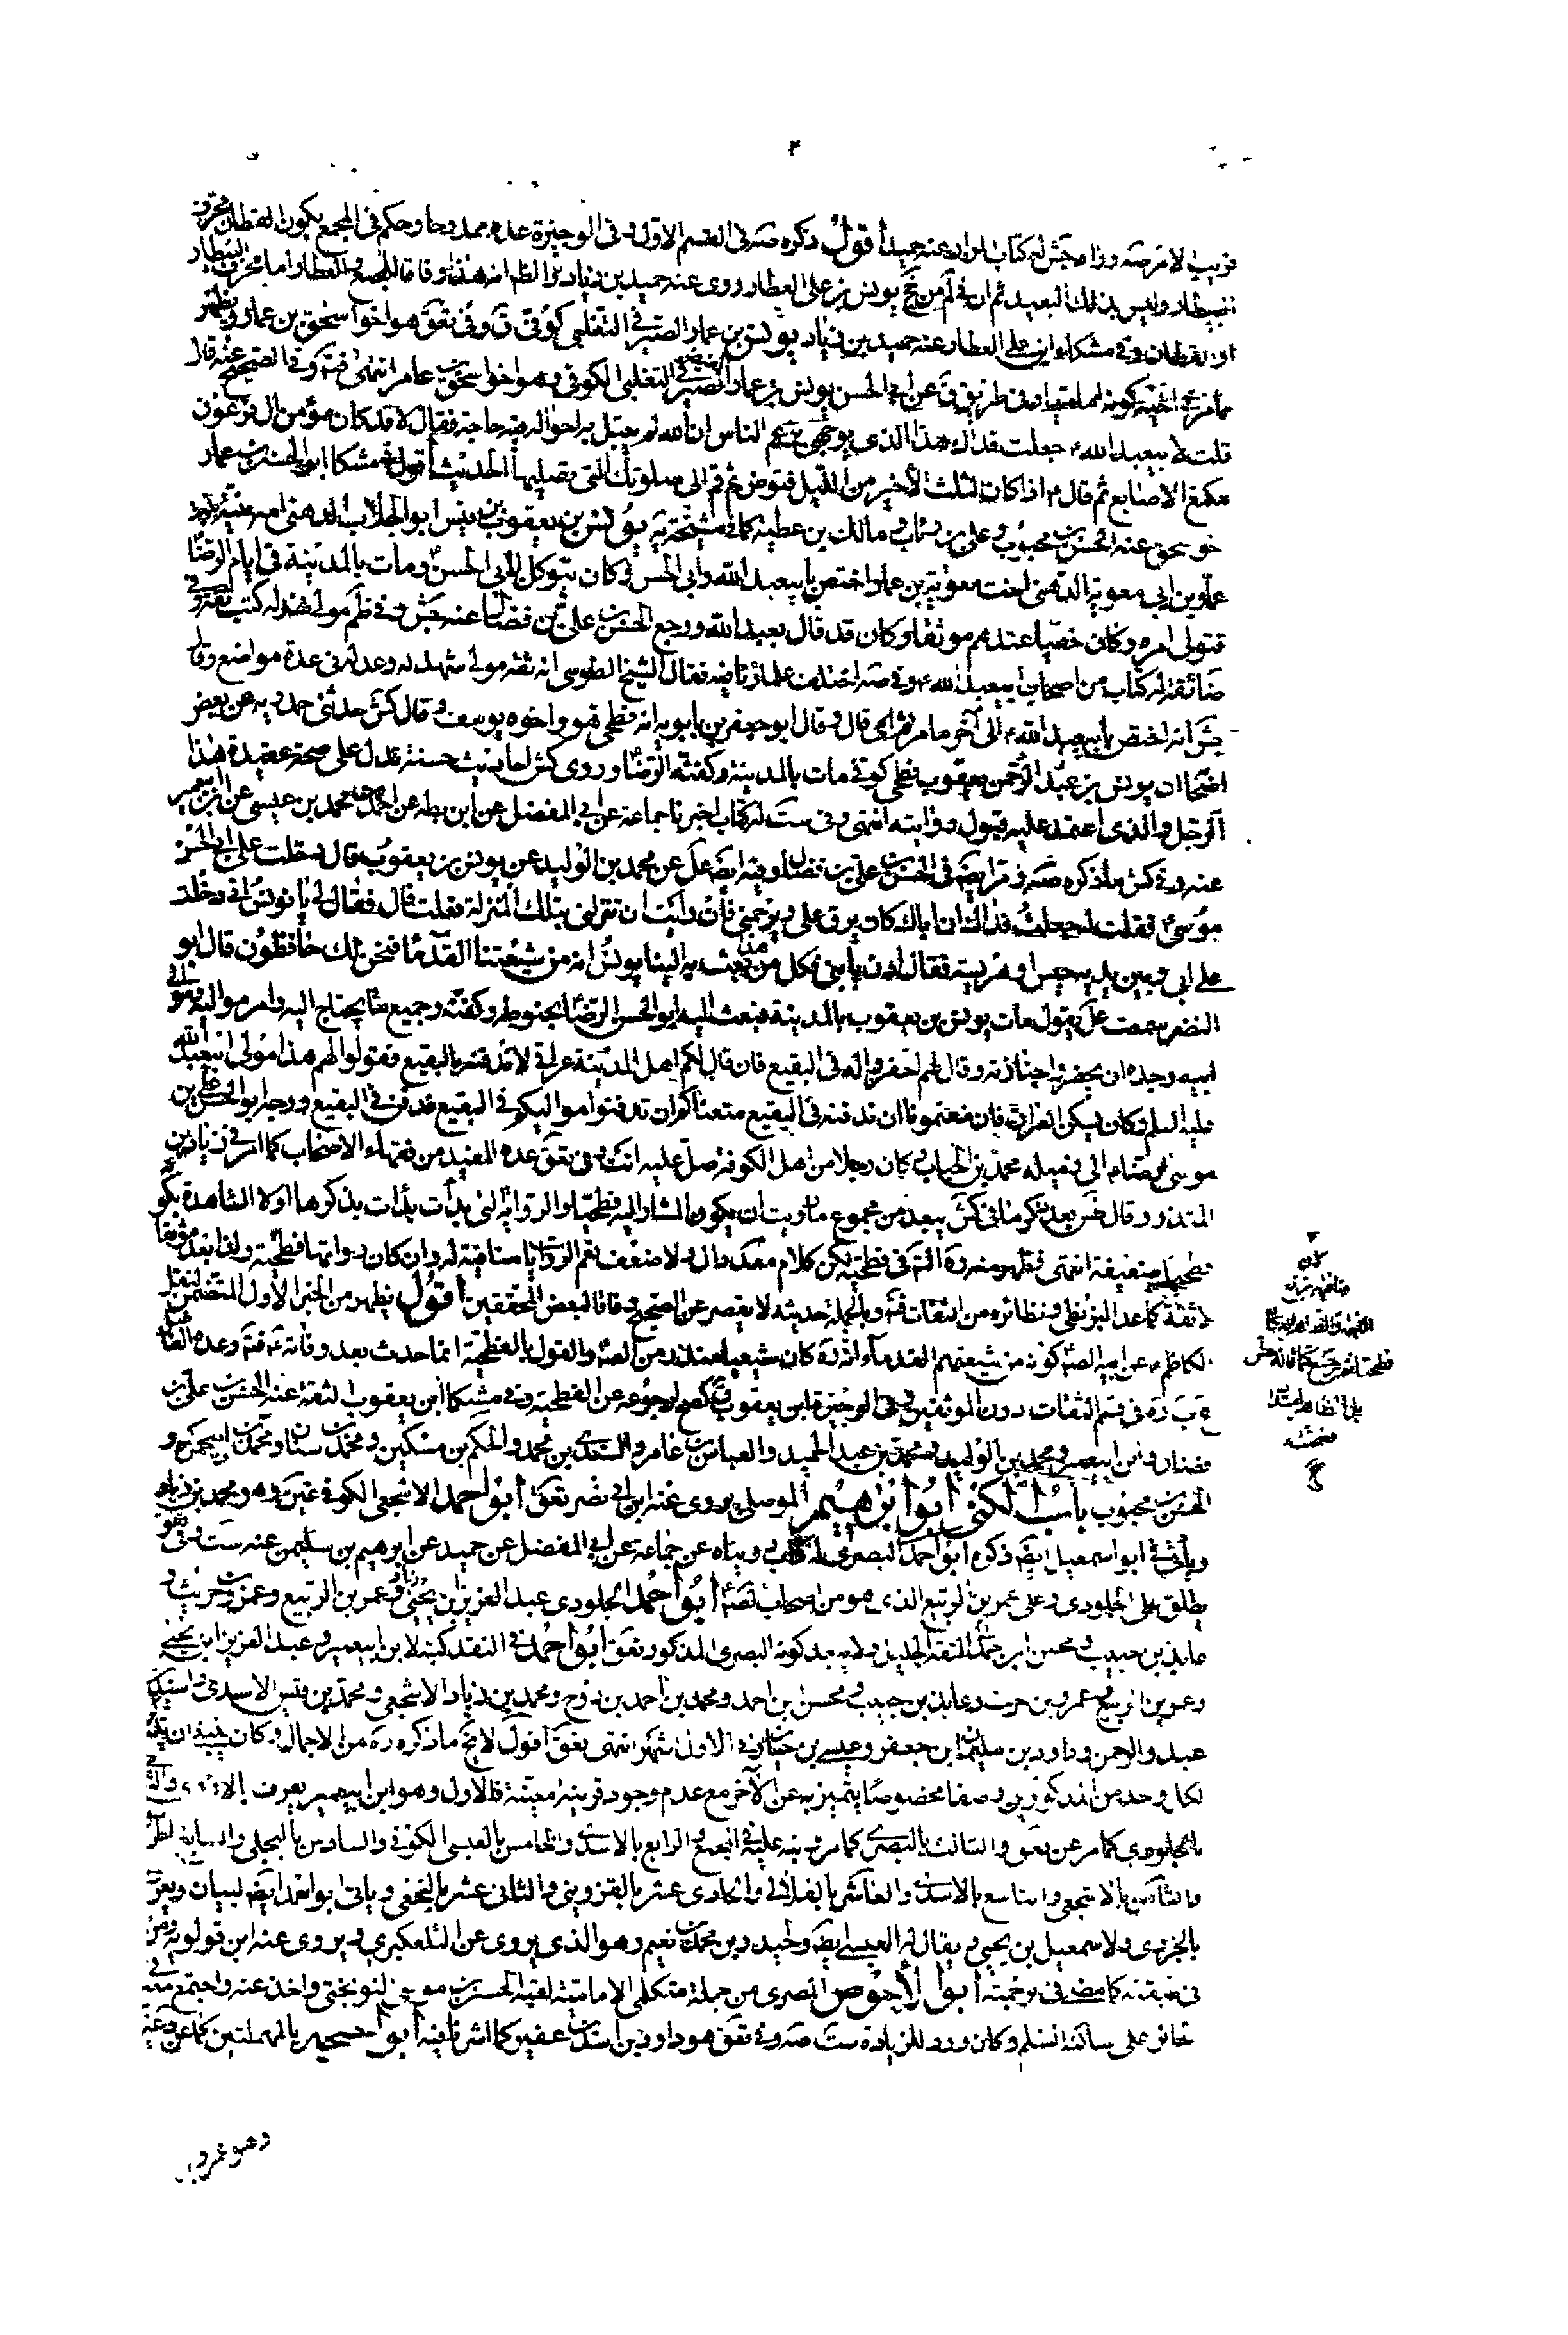 ٣
قريب الا مر صه وزاد جش له كتاب عنه حميد أقول ذكره صه فى القسم الاول وفى الوجيزة عده ممدوحا وحكم فى المجمع بكون القطان محرف
وليس بذلك البعيد ثم ان فى لم من نخ يونس بن على العطار روى عنه حميد بن زياد والظاهر انه هذا وفاقا للمجمع والعطار اما محرف البيطار
او القطان وفى مشكا ابن على العطار عنه حميد بن زياد يونس بن عمار الصيرفى التغلبى كوفى ق وفى تعق هو اخو اسحق بن عمار ويظهر
مما مر فى اخيه كونه اماميا وفى طريق ق عن ابى الحسن يونس بن عمار الصيرفى التغلبى الكوفى وهو اخو اسحق بن عمار انتهى فتد وفى الصحيح عنه قال
قلت لابيعبد الله ع جعلت فداك هذا الذى بوجهى يزعم الناس ان الله لم يبتل به احدا له فيه حاجة فقال لا قد كان مؤمن ال فرعون
مكنع الاصابع ثم قال ع اذا كان الثلث الاخير من الليل فتوض ثم قم الى صلوتك التى تصليها الحديث أقول فى مشكا ابو الحسن بن عمار
اخو اسحق عنه الحسن بن محبوب وعلى بن رئاب ومالك بن عطية كما فى مشيخة يه يونس بن يعقوب بن قيس ابو الجلاب الدهنى امه منية
عمار بن ابى معوية الدهنى اخت معوية بن عمار اختص بابيعبد الله وابى الحسن ع وكان يتوكل لابى الحسن ع ومات بالمدينة فى ايام الرضا ع
فتولى امره وكان حظيا عندهم موثقا وكان قد قال بعبد الله ورجع الحسن بن على بن فضال عنه جش وفى ظم مولى نهد له كتب ثقة وفى
ضا ثقة له كتاب من اصحاب ابيعبد الله ع وفى صه اختلف علماؤنا فيه فقال الشيخ الطوسى انه ثقة مولى شهد له وعدله فى عدة مواضع وقال
جش انه اختص بابيعبد الله ع الى آخر ما مر ثم قال وقال ابو جعفر بن بابويه انه فطحى هو واخوه يوسف وقال كش حدثنى حمدويه عن بعض
اصحابنا ان يونس بن يعقوب فطحى كوفى مات بالمدينة وكفنه الرضا ع وروى كش احاديث حسنة تدل على صحة عقيدة هذا
الرجل والذى اعتمد عليه قبول روايته انتهى وفى ست له كتاب اخبرنا جماعة عن ابى المفضل عن ابن بطه عن احمد بن محمد بن عيسى عن ابن ابيعمير
عنه وفى كش ما ذكره صه فى الحسن بن على بن فضال وفيه ايضا على عن محمد بن الوليد عن يونس بن يعقوب قال دخلت على ابى الحسن
موسى ع فقلت له جعلت فداك ان اباك كان يرق على ويرحمنى فان رايت ان تنزلنى بتلك المنزلة فعلت قال فقال لى يا يونس انى دخلت
على ابى وبين يديه حيس او هريسة فقال ادن يا بنى فكل من هذا بعث به الينا يونس انه من شيعتنا القدماء فنحن لك حافظون قال ابو
النضر سمعت على يقول مات يونس بن يعقوب بالمدينة فبعث اليه ابو الحسن الرضا ع بحنوطه وكفنه وجميع ما يحتاج اليه وامر مواليه وموالى
ابيه وجده ان يحضروا جنازته وقال لهم احفروا له فى البقيع فان قال لكم اهل المدينة عراقى لا ندفنه بالبقيع فقولوا لهم هذا مولى ابيعبد الله
عليه السلم وكان يسكن العراق فان منعتمونا ان ندفنه فى البقيع منعناكم ان تدفنوا مواليكم فى البقيع فدفن فى البقيع ووجه ابو الحسن على بن
موسى ع الى زميله محمد بن الحباب وكان رجلا من اهل الكوفة صل عليه انت وفى تعق عده المفيد من فقهاء الاصحاب كما مر فى زياد بن
المنذر وقال بعد ذكر ما فى كش يبعد من مجموع ما رويت ان يكون المشار اليه فطحيا والرواية التى بدأت بذكرها اولا الشاهدة بكونه
فطحيا ضعيفة انتهى ويظهر منه ره التوقف فى فطحيته لكن كلام معد وال ولا ضعف نعم الروايات لا منافية له وان كان روايتها فطحية ولذا يعد موثقا
لا ثقة كما عد البزنطى ونظائره من الثقات فتد وبالجملة حديثه لا يقصر عن الصحيح وفاقا لبعض المحققين أقول يظهر من الخبر الاول المتضمن لنقل
الكاظم ع عن ابيه الصادق كونه من شيعتهم القدماء انه كان شيعيا منذ زمن الصادق والقول بالفطحية انما حدث بعد وفاته ع فتد وعده الفاضل
عبد ره فى قسم الثقات دون الموثقين وفى الوجيزة ابن يعقوب ق كصح لرجوعه عن الفطحية وفى مشكا ابن يعقوب الثقة عنه الحسن بن على بن
فضال وابن ابيعمير ومحمد بن الوليد ومحمد بن عبد الحميد والعباس بن عامر والسندى بن محمد والحكم بن مسكين ومحمد بن سنان ومحمد بن ابيحمزة و
الحسن بن محبوب باب الكنى ابو ابرهيم الموصلى يروى عنه ابن ابى نصر تعق ابو احمد الاشجعى الكوفى وهو محمد بن زياد
وياتى فى ابو اسمعيل ايضا ذكره ابو احمد البصرى له كتاب رويناه عن جماعة عن ابى المفضل عن حميد عن ابرهيم بن سليمن عنه ست وفى تعق
يطلق على الجلودى وعلى عمر بن الربيع الذى هو من اصحاب الصادق ابو احمد الجلودى عبد العزيز بن يحيى وعمر بن الربيع وعمرو بن حريث و
عايذ بن حبيب ومحسن ابن احمد الثقة الجليل ولا يبعد كونه البصرى المذكور تعق ابو احمد فى النقد كنية لابن ابيعمير وعبد العزيز ابن يحيى
وعمر بن الربيع وعمرو بن حريث وعايذ بن حبيب ومحسن ابن احمد ومحمد بن احمد بن روح ومحمد بن زياد الاشجعى ومحمد بن قيس الاسدى واسيد بن
عبد الرحمن وداود بن سليمان ابن جعفر وعيسى بن حيان وفى الاول اشهر انتهى تعق أقول لا يخ ما ذكره ره من الاجمال وكان ينبغى ان يذكر
لكل واحد من المذكورين وصفا مخصوصا يتميز به عن الآخر مع عدم وجود قرينة معينة فالاول وهو ابن ابيعمير يعرف بالازدى والثانى
بالجلودى كما مر عن تعق والثالث بالبصرى كما مر عليه فى المجمع والرابع بالاسدى والخامس بالعبسى الكوفى والسادس بالبجلى والسابع
والثامن بالاشجعى والتاسع بالاسدى والعاشر والحادى عشر بالقزوينى والثانى عشر بالنخعى وياتى ابو احمد ايضا لبيان ويعرف
بالجزيرى ولاسمعيل بن يحيى ويقال له العبسى ايضا وحيدر بن محمد بن نعيم وهو الذى يروى عن التلعكبرى ويروى عنه ابن قولويه ومن
فى طبقته كما مضى فى ترجمته ابو الاحوص البصرى من جملة متكلمى الامامية لقيه الحسن بن موسى النوبختى واخذ عنه واجتمع معه فى
الحائر على ساكنه السلم وكان ورد للزيارة ست صه وفى تعق هو داود بن اسد بن عفير كما اشرنا فيه ابو احيحة بالمهملتين كما عن د عنه
وهو عمرو بن